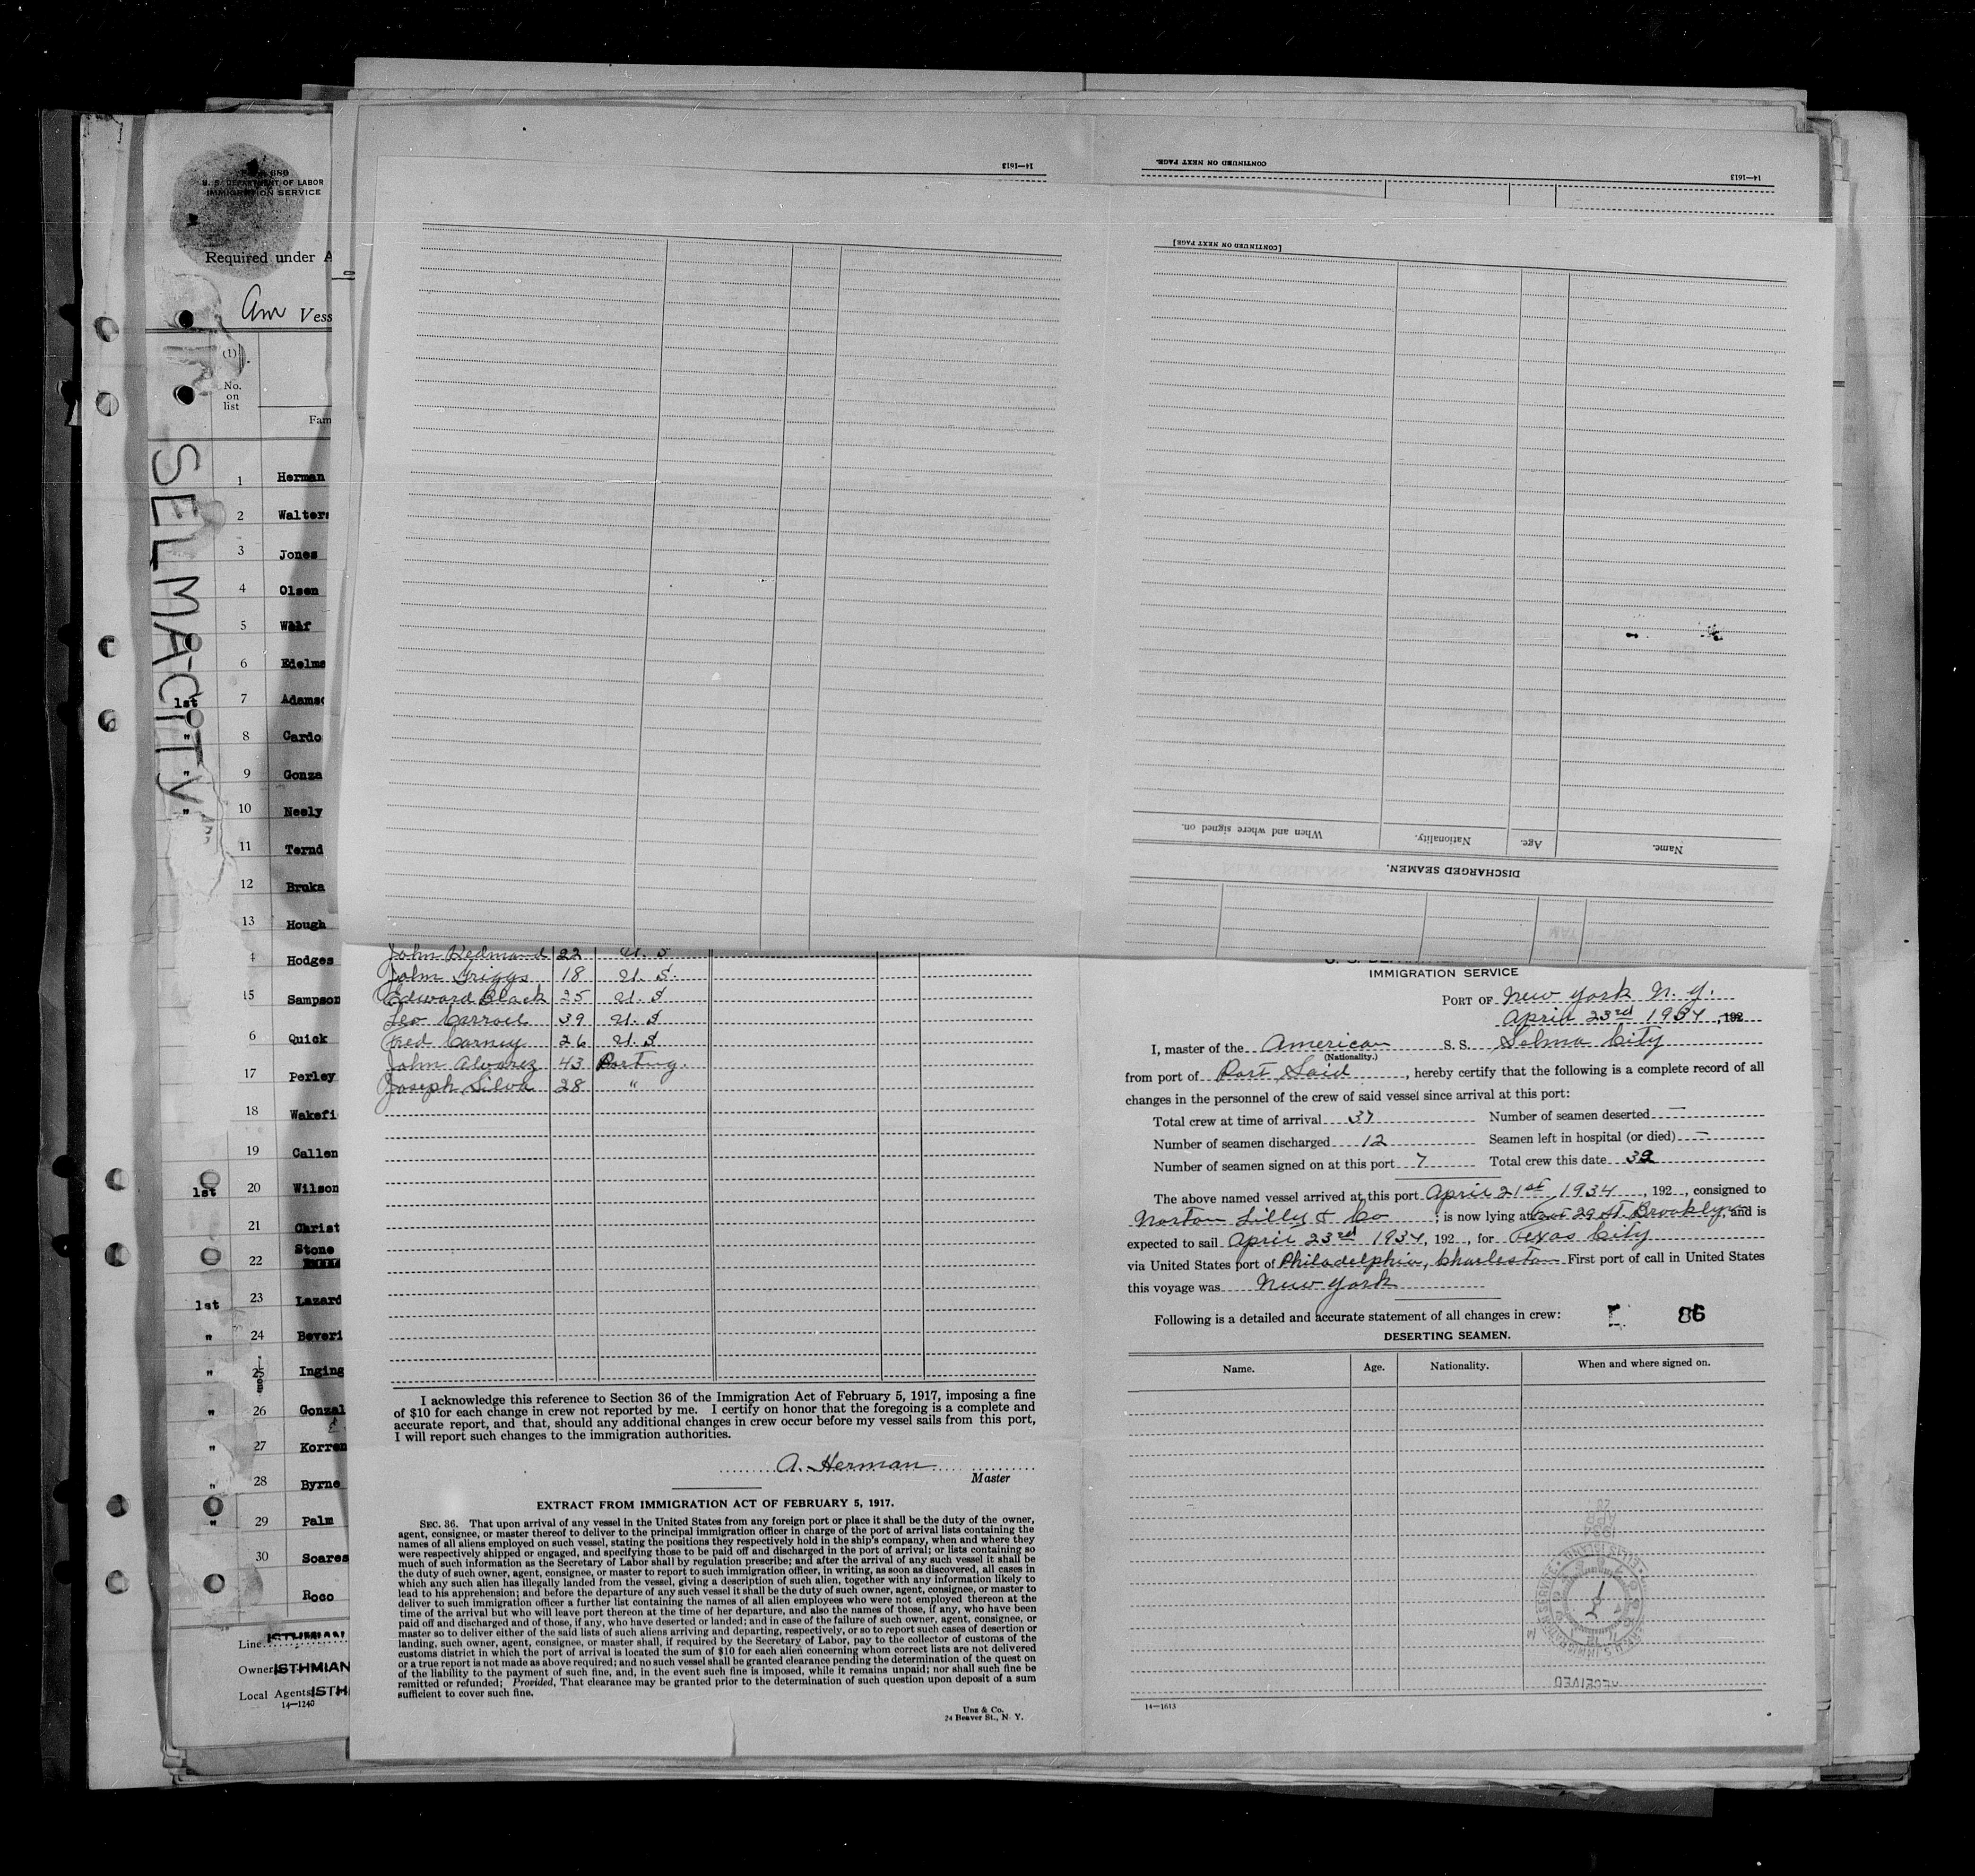 U. S. DEPARTMENT OF LABOR
IMMIGRATION SERVICE
Required under A
Am Vess
(1)
No.
on
list
Fam
SELMA CITY
1 Herman
2 Walters
3 Jones
4 Olsen
5
6 Edelma
1st 7 Adamso
" 8 Cardo
" 9 Gonza
" 10 Neely
11 Ternd
12 Bruka
13 Hough
4 Hodges
15 Sampson
6 Quick
17 Perley
18 Wakefi
19 Callen
1st 20 Wilson
21 Christ
22 Stone
1st 23 Lazard
" 24 Beveri
" 25 Inging
" 26 Gonzal
" 27 Korren
" 28 Byrne
" 29 Palm
30 Soares
Roco
Line ISTHMIAN
Owner ISTHMIAN
Local Agents ISTH
14—1240
14—1613
CONTINUED ON NEXT PAGE.
14—1613
[CONTINUED ON NEXT PAGE]
When and where signed on.
Nationality.
Age.
Name.
DISCHARGED SEAMEN.
John Redmond 22 U. S
John Griggs 18 U. S.
Edward Black 25 U. S
Leo Carroll 39 U. S
Fred Carney 26 U. S
John Alvarez 43 Portug.
Joseph Silva 28 "
I acknowledge this reference to Section 36 of the Immigration Act of February 5, 1917, imposing a fine
of $10 for each change in crew not reported by me. I certify on honor that the foregoing is a complete and
accurate report, and that, should any additional changes in crew occur before my vessel sails from this port,
I will report such changes to the immigration authorities.
A. Herman
Master
EXTRACT FROM IMMIGRATION ACT OF FEBRUARY 5, 1917.
SEC. 36. That upon arrival of any vessel in the United States from any foreign port or place it shall be the duty of the owner,
agent, consignee, or master thereof to deliver to the principal immigration officer in charge of the port of arrival lists containing the
names of all aliens employed on such vessel, stating the positions they respectively hold in the ship's company, when and where they
were respectively shipped or engaged, and specifying those to be paid off and discharged in the port of arrival; or lists containing so
much of such information as the Secretary of Labor shall by regulation prescribe; and after the arrival of any such vessel it shall be
the duty of such owner, agent, consignee, or master to report to such immigration officer, in writing, as soon as discovered, all cases in
which any such alien has illegally landed from the vessel, giving a description of such alien, together with any information likely to
lead to his apprehension; and before the departure of any such vessel it shall be the duty of such owner, agent, consignee, or master to
deliver to such immigration officer a further list containing the names of all alien employees who were not employed thereon at the
time of the arrival but who will leave port thereon at the time of her departure, and also the names of those, if any, who have been
paid off and discharged and of those, if any, who have deserted or landed; and in case of the failure of such owner, agent, consignee, or
master so to deliver either of the said lists of such aliens arriving and departing, respectively, or so to report such cases of desertion or
landing, such owner, agent, consignee, or master shall, if required by the Secretary of Labor, pay to the collector of customs of the
customs district in which the port of arrival is located the sum of $10 for each alien concerning whom correct lists are not delivered
or a true report is not made as above required; and no such vessel shall be granted clearance pending the determination of the quest on
of the liability to the payment of such fine, and, in the event such fine is imposed, while it remains unpaid; nor shall such fine be
remitted or refunded; Provided, That clearance may be granted prior to the determination of such question upon deposit of a sum
sufficient to cover such fine.
Unz & Co.
24 Beaver St., N. Y.
IMMIGRATION SERVICE
PORT OF New York N. Y.
April 23rd 1934, 192
I, master of the American S. S. Selma City
(Nationality.)
from port of Port Said, hereby certify that the following is a complete record of all
changes in the personnel of the crew of said vessel since arrival at this port:
Total crew at time of arrival 37 Number of seamen deserted —
Number of seamen discharged 12 Seamen left in hospital (or died) —
Number of seamen signed on at this port 7 Total crew this date 32
The above named vessel arrived at this port April 21st 1934, 192 , consigned to
Norton Lilly & Co ; is now lying at Foot 29 St. Brooklyn, and is
expected to sail April 23rd 1934, 192 , for Texas City
via United States port of Philadelphia, Charleston First port of call in United States
this voyage was New York
Following is a detailed and accurate statement of all changes in crew: 86
DESERTING SEAMEN.
Name. Age. Nationality. When and where signed on.
RECEIVED
14—1613